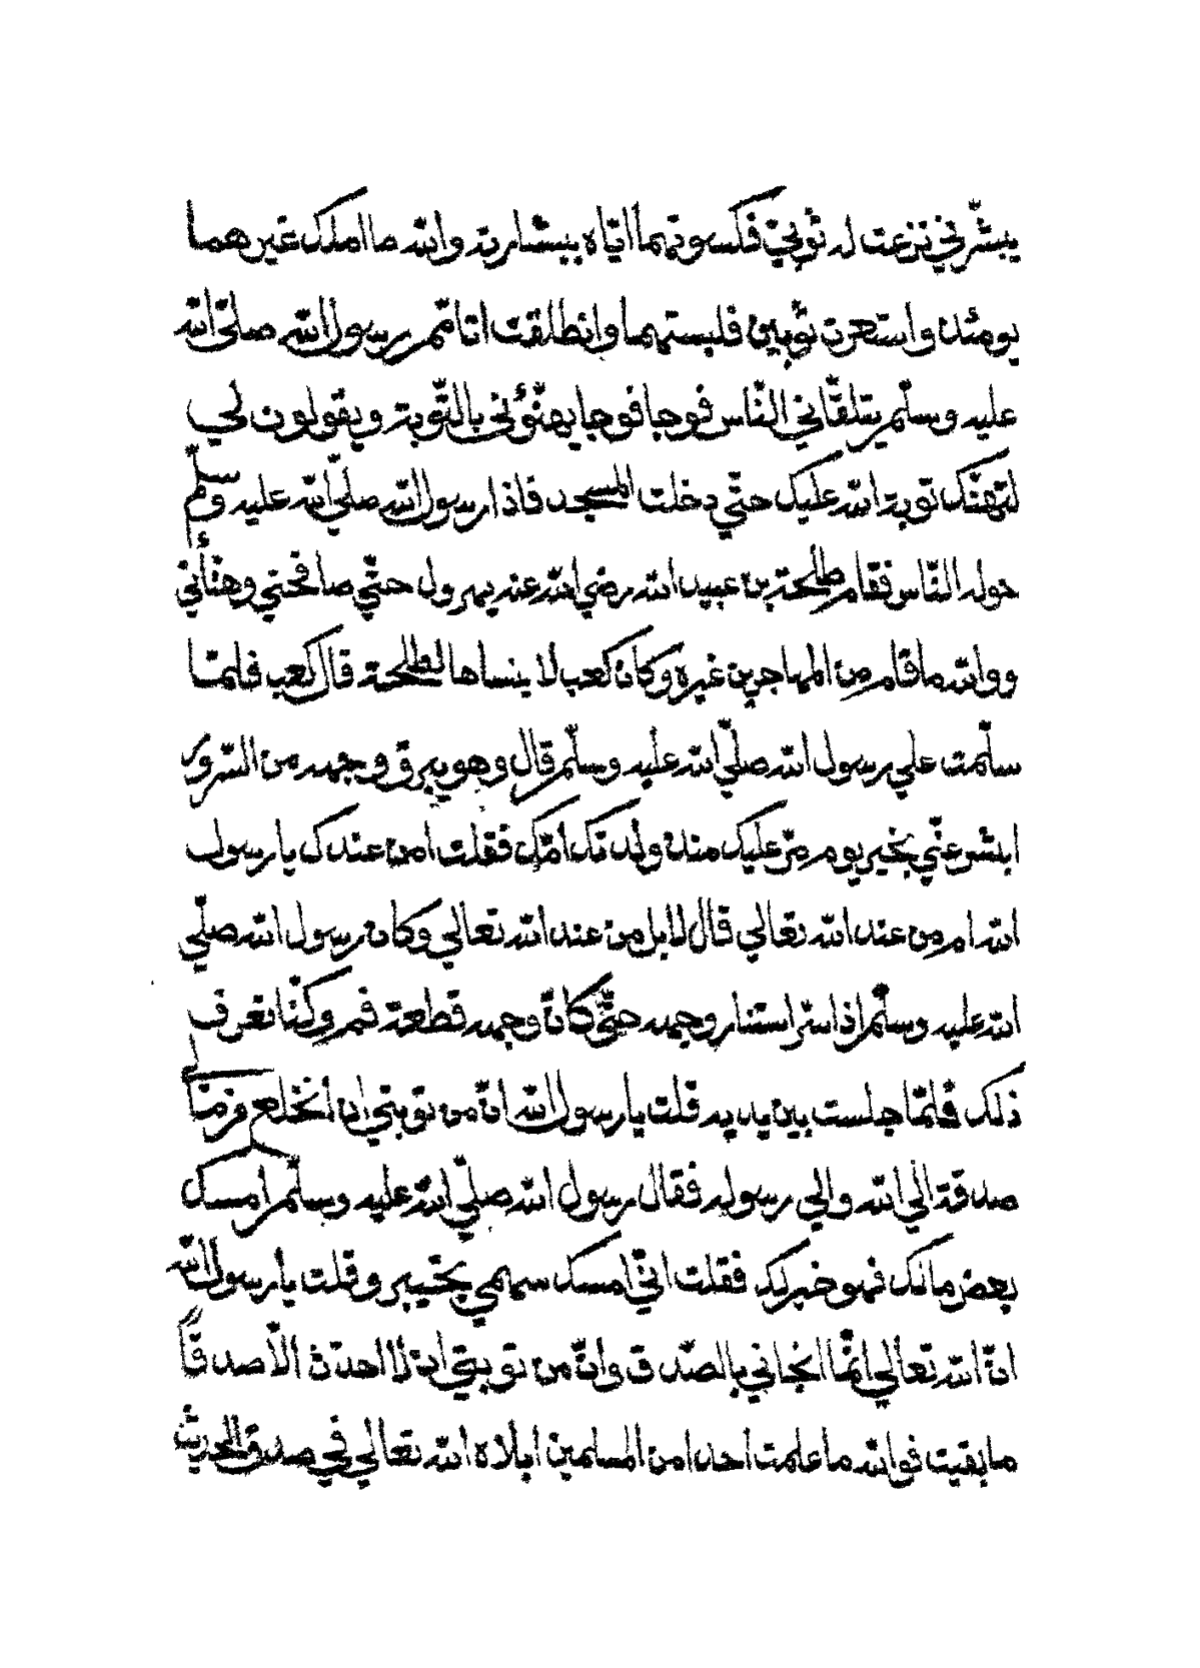 يبشّرني نزعت له ثوبيّ فكسوتهما اتاه ببشارته والله ما املك غيرهما
يومئذ واستعرت ثوبين فلبستهما وانطلقت اتامّم رسول الله صلّى الله
عليه وسلّم يتلقّاني النّاس فوجا فوجا يهنّؤني بالتّوبة ويقولون لي
لتهنّك توبة الله عليك حتّي دخلت المسجد فاذا رسول الله صلّي الله عليه وسلّم
حوله النّاس فقام طلحة بن عبيد الله رضي الله عنه يهرول حتّي صافحني وهنّأني
ووالله ما قام من المهاجرين غيره وكان كعب لا ينساها لطلحة قال كعب فلمّا
سلّمت علي رسول الله صلّي الله عليه وسلّم قال وهو يبرق وجهه من السّرور
ابشر عنّي بخير يوم مرّ عليك منذ ولدتك امّك فقلت امن عندك يا رسول
الله ام من عند الله تعالي قال لا بل من عند الله تعالي وكان رسول الله صلّي
الله عليه وسلّم اذا سرّ استنار وجهه حتّي كانّ وجهه قطعة قمر وكنّا نعرف
ذلك فلمّا جلست بين يديه قلت يا رسول الله انّ من توبتي ان أنخلع من مالي
صدقة الي الله والي رسوله فقال رسول الله صلّي الله عليه وسلّم أمسك
بعض مالك فهو خير لك فقلت انّي امسك سهمي بخيبر وقلت يا رسول الله
انّ الله تعالي انّما انجاني بالصّدق وانّ من توبتي ان لا احدّث الّا صدقًا
ما بقيت فوالله ما علمت احدا من المسلمين ابلاه الله تعالي في صدق الحديث